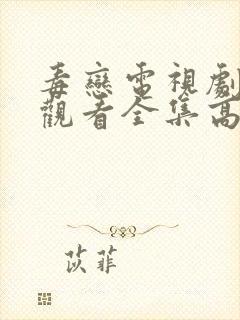 毒戀電視劇
觀看全集高
苡菲